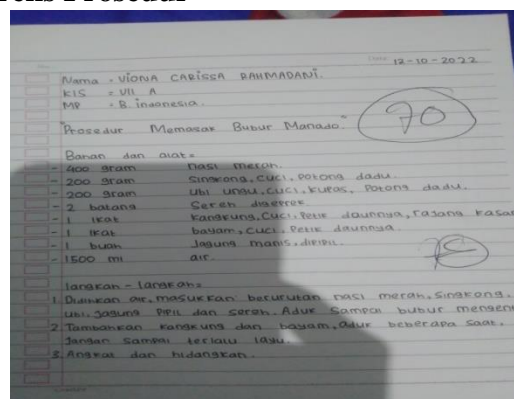 12-10-2022
Nama : VIONA CARISSA RAHMADANI.
KlS : VII A
MP : B. indonesia.
"Prosedur Memasak Bubur Manado."
90
Bahan dan alat =
- 400 gram nasi merah.
- 200 gram singkong, cuci, potong dadu.
- 200 gram ubi ungu, cuci, kupas, potong dadu.
- 2 batang Sereh digeprek.
- 1 ikat kangkung, cuci, petik daunnya, rajang kasar
- 1 ikat bayam, cuci, petik daunnya.
- 1 buah Jagung manis, dipipil.
- 1500 ml air.
langkah - langkah =
1. Didihkan air, masukkan berurutan nasi merah, singkong,
ubi, jagung pipil dan sereh. Aduk sampai bubur mengen
2. Tambahkan kangkung dan bayam, aduk beberapa saat,
Jangan sampai terlalu layu.
3. Angkat dan hidangkan.